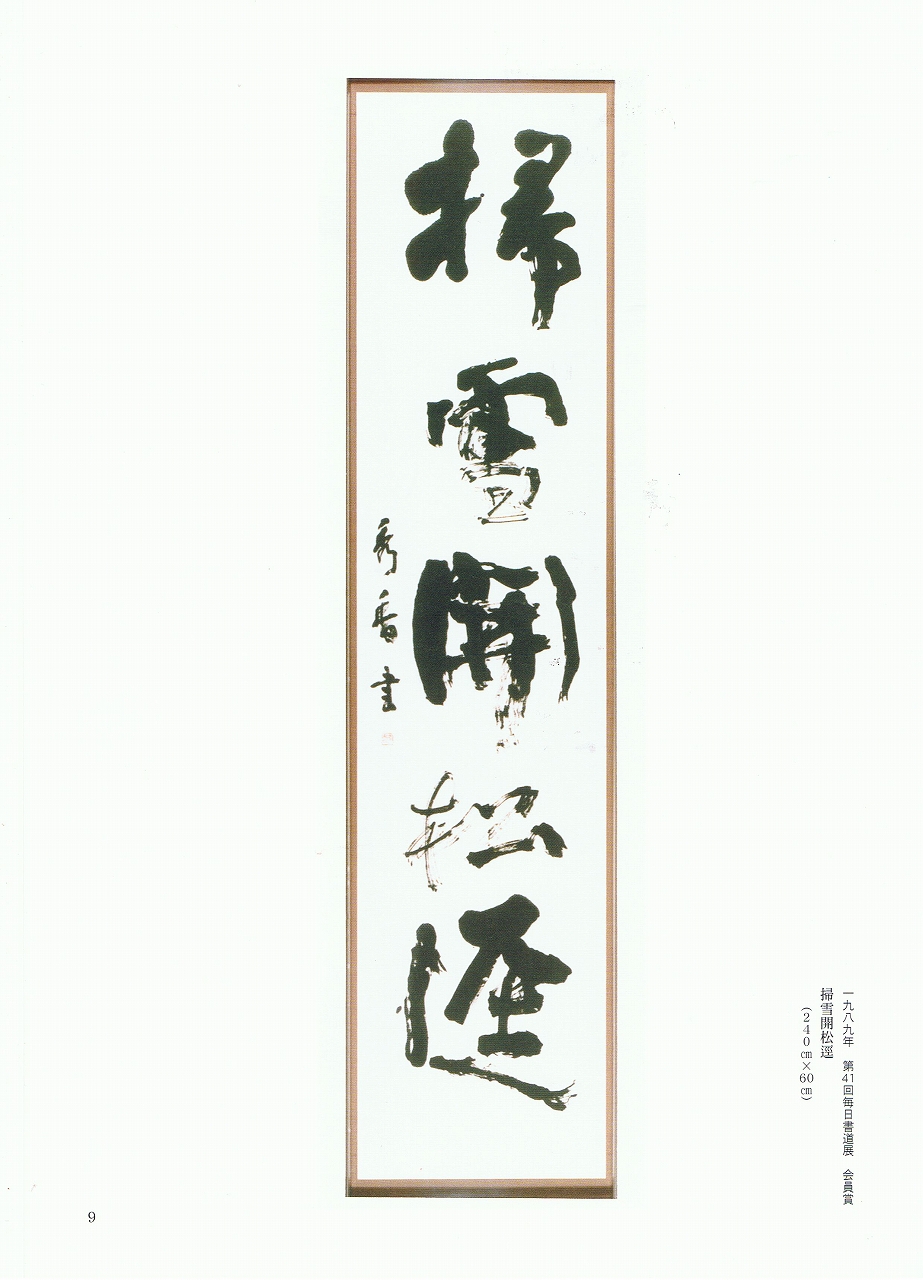 掃雪開松逕
秀香書
一九八九年　第41回毎日書道展　会員賞
掃雪開松逕
(240㎝×60㎝)
9